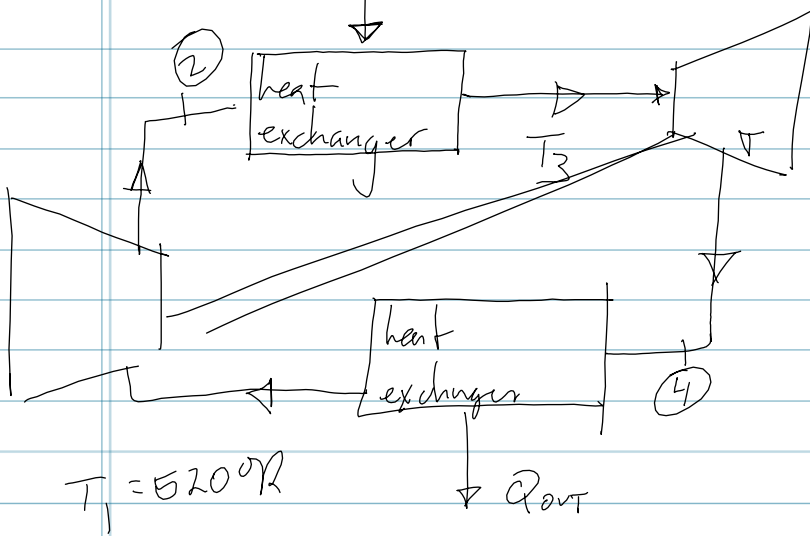 2
heat
exchanger
T3
heat
exchanger
4
T1 = 520°R
QOUT